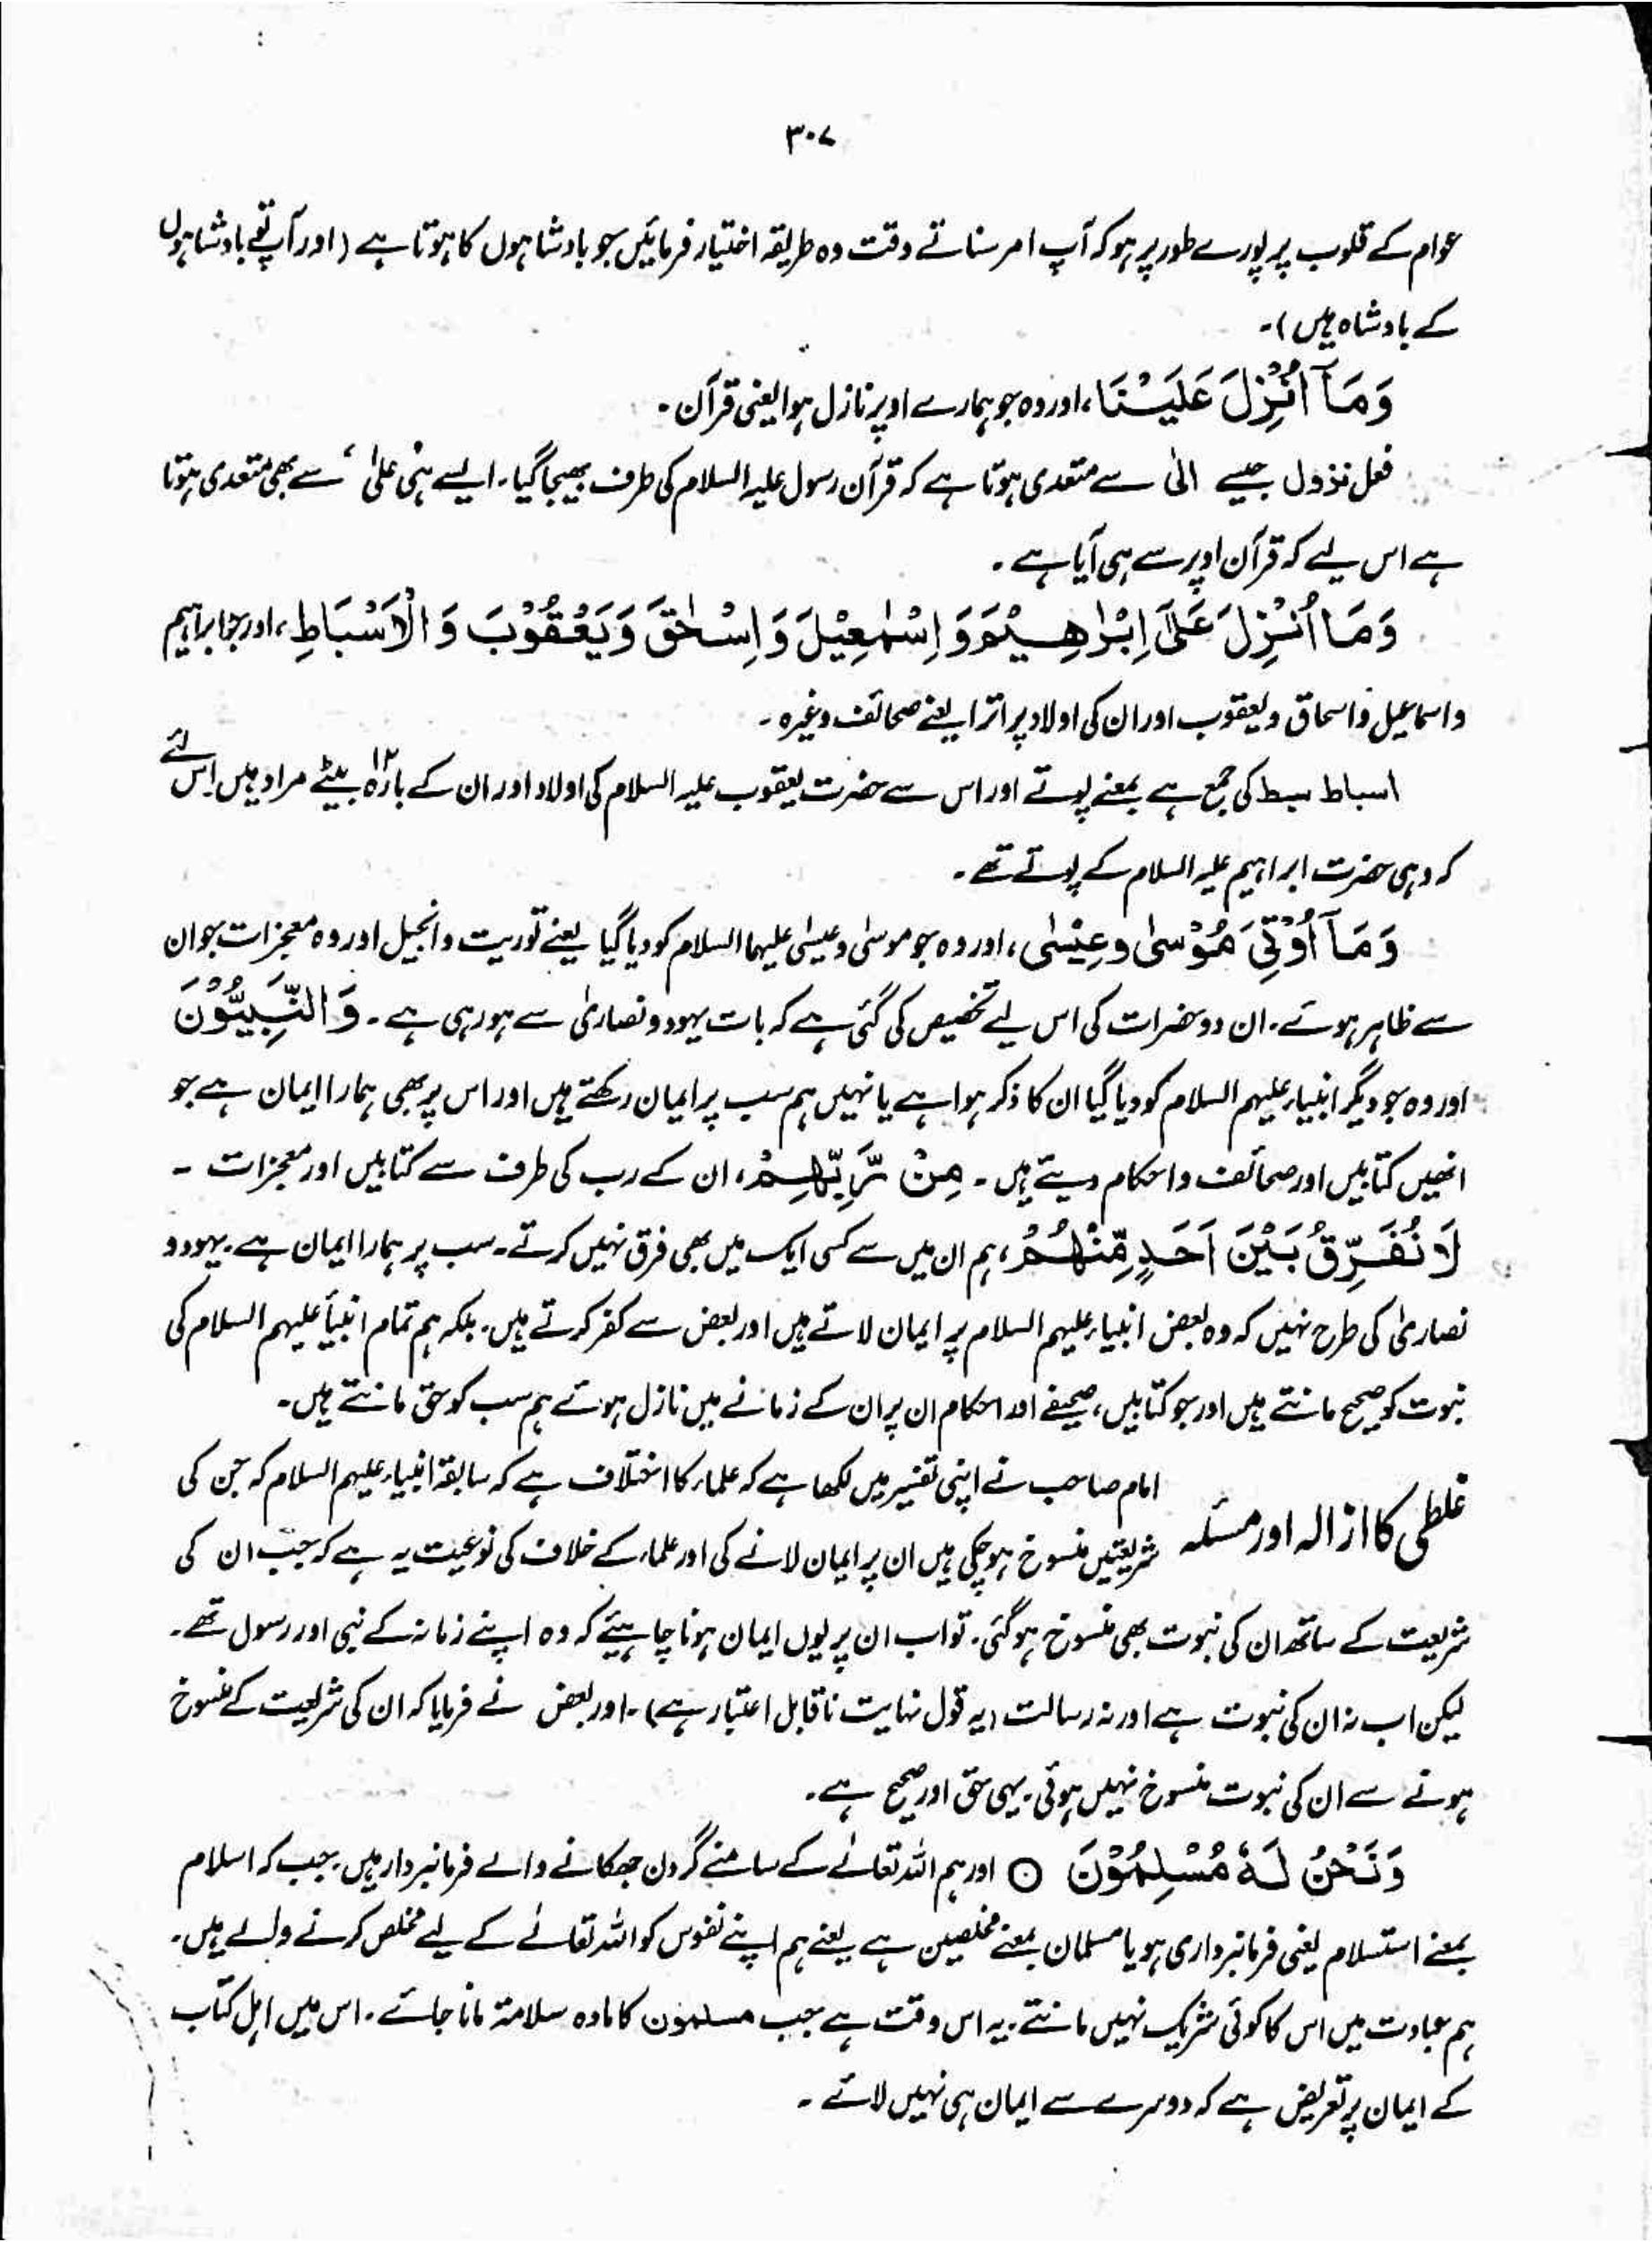 ۳۰۷
عوام کے قلوب پر پورے طور پر ہو کہ آپ امر سناتے وقت وہ طریقہ اختیار فرمائیں جو بادشاہوں کا ہوتا ہے (اور آپ تو بادشاہوں
کے بادشاہ ہیں)۔
وَمَآ اُنْزِلَ عَلَيْنَا، اور وہ جو ہمارے اوپر نازل ہوا یعنی قرآن۔
فعل نزول جیسے الیٰ سے متعدی ہوتا ہے کہ قرآن رسول علیہ السلام کی طرف بھیجا گیا۔ ایسے ہی علیٰ، سے بھی متعدی ہوتا
ہے اس لیے کہ قرآن اوپر سے ہی آیا ہے۔
وَمَا اُنْزِلَ عَلَىٰٓ اِبْرٰهِيْمَ وَ اِسْمٰعِيْلَ وَ اِسْحٰقَ وَيَعْقُوْبَ وَ الْاَسْبَاطِ، اور جو ابراہیم
واسماعیل واسحاق ویعقوب اور ان کی اولاد پر اترا یعنے صحائف وغیرہ۔
اسباط سبط کی جمع ہے بمعنے پوتے اور اس سے حضرت یعقوب علیہ السلام کی اولاد اور ان کے بارہ ۱۲ بیٹے مراد ہیں اس لئے
کہ وہی حضرت ابراہیم علیہ السلام کے پوتے تھے۔
وَمَآ اُوْتِيَ مُوْسىٰ وعِيْسٰى، اور وہ جو موسیٰ وعیسیٰ علیہما السلام کو دیا گیا یعنے توریت وانجیل اور وہ معجزات جو ان
سے ظاہر ہوئے۔ ان دو حضرات کی اس لیے تخصیص کی گئی ہے کہ بات یہود و نصاریٰ سے ہو رہی ہے۔ وَالنَّبِيُّوْنَ
اور وہ جو دیگر انبیاء علیہم السلام کو دیا گیا ان کا ذکر ہوا ہے یا نہیں ہم سب پر ایمان رکھتے ہیں اور اس پر بھی ہمارا ایمان ہے جو
انھیں کتابیں اور صحائف واحکام دیتے ہیں۔ مِنْ رَّبِّهِمْ، ان کے رب کی طرف سے کتابیں اور معجزات۔
لَا نُفَرِّقُ بَيْنَ اَحَدٍ مِّنْهُمْ، ہم ان میں سے کسی ایک میں بھی فرق نہیں کرتے۔ سب پر ہمارا ایمان ہے۔ یہود و
نصاریٰ کی طرح نہیں کہ وہ بعض انبیاء علیہم السلام پر ایمان لاتے ہیں اور بعض سے کفر کرتے ہیں۔ بلکہ ہم تمام انبیاء علیہم السلام کی
نبوت کو صحیح مانتے ہیں اور جو کتابیں، صحیفے اور احکام ان پر ان کے زمانے میں نازل ہوئے ہم سب کو حق مانتے ہیں۔
غلطی کا ازالہ اور مسئلہ
امام صاحب نے اپنی تفسیر میں لکھا ہے کہ علماء کا اختلاف ہے کہ سابقہ انبیاء علیہم السلام کہ جن کی
شریعتیں منسوخ ہوچکی ہیں ان پر ایمان لانے کی اور علماء کے خلاف کی نوعیت یہ ہے کہ جب ان کی
شریعت کے ساتھ ان کی نبوت بھی منسوخ ہوگئی۔ تو اب ان پر یوں ایمان ہونا چاہیئے کہ وہ اپنے زمانہ کے نبی اور رسول تھے۔
لیکن اب نہ ان کی نبوت ہے اور نہ رسالت (یہ قول نہایت ناقابل اعتبار ہے)۔ اور بعض نے فرمایا کہ ان کی شریعت کے منسوخ
ہونے سے ان کی نبوت منسوخ نہیں ہوئی۔ یہی حق اور صحیح ہے۔
وَنَحْنُ لَهٗ مُسْلِمُوْنَ ○ اور ہم اللہ تعالےٰ کے سامنے گردن جھکانے والے فرمانبردار ہیں۔ جب کہ اسلام
بمعنے استسلام یعنی فرمانبرداری ہو یا مسلمان بمعنے مخلصین ہے یعنے ہم اپنے نفوس کو اللہ تعالےٰ کے لیے مخلص کرنے والے ہیں۔
ہم عبادت میں اس کا کوئی شریک نہیں مانتے۔ یہ اس وقت ہے جب مسلمون کا مادہ سلامۃ مانا جائے۔ اس میں اہل کتاب
کے ایمان پر تعریض ہے کہ دوسرے سے ایمان ہی نہیں لائے۔